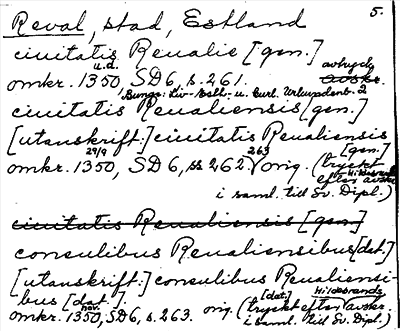 Reval, stad, Estland 5.
civitatis Reualie [gen.]
omkr. 1350 u.d., SD 6, s. 261. avtryck avskr.
Bunge: Liv- Esth- u. Curl. Urkundenb. 2
civitatis Reualiensis [gen.]
[utanskrift:] civitatis Reualiensis [gen.]
omkr. 1350 29/9, SD 6, ss 262, 263 orig. (tryckt
efter Hildebrands avskr.
i saml. till Sv. Dipl.)
civitatis Reualiensis [gen.]
consulibus Reualiensibus [dat.]
[utanskrift:] consulibus Reualiensi-
bus [dat.] [dat.] Hildebrands
omkr. 1350 nov., SD 6, s. 263. orig. (tryckt efter avskr.
i saml. till Sv. Dipl.)